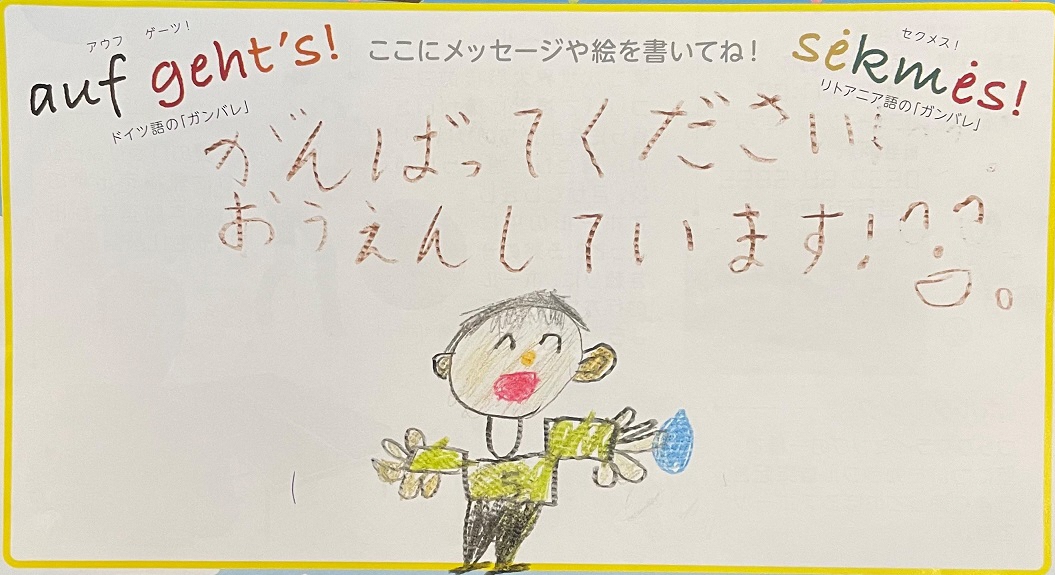 アウフ ゲーツ!
auf geht's!
ドイツ語の「ガンバレ」
ここにメッセージや絵を書いてね!
セクメス!
sėkmės!
リトアニア語の「ガンバレ」
がんばってください!
おうえんしています!